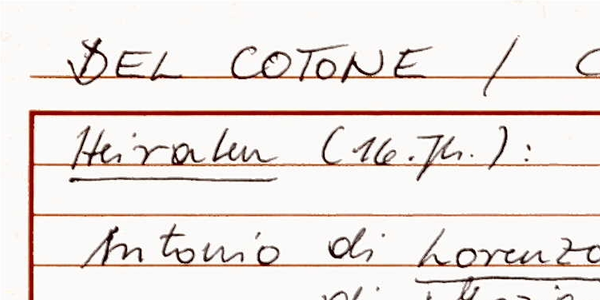 DEL COTONE / C
Heiraten (16. Jh.):
Antonio di Lorenzo
di